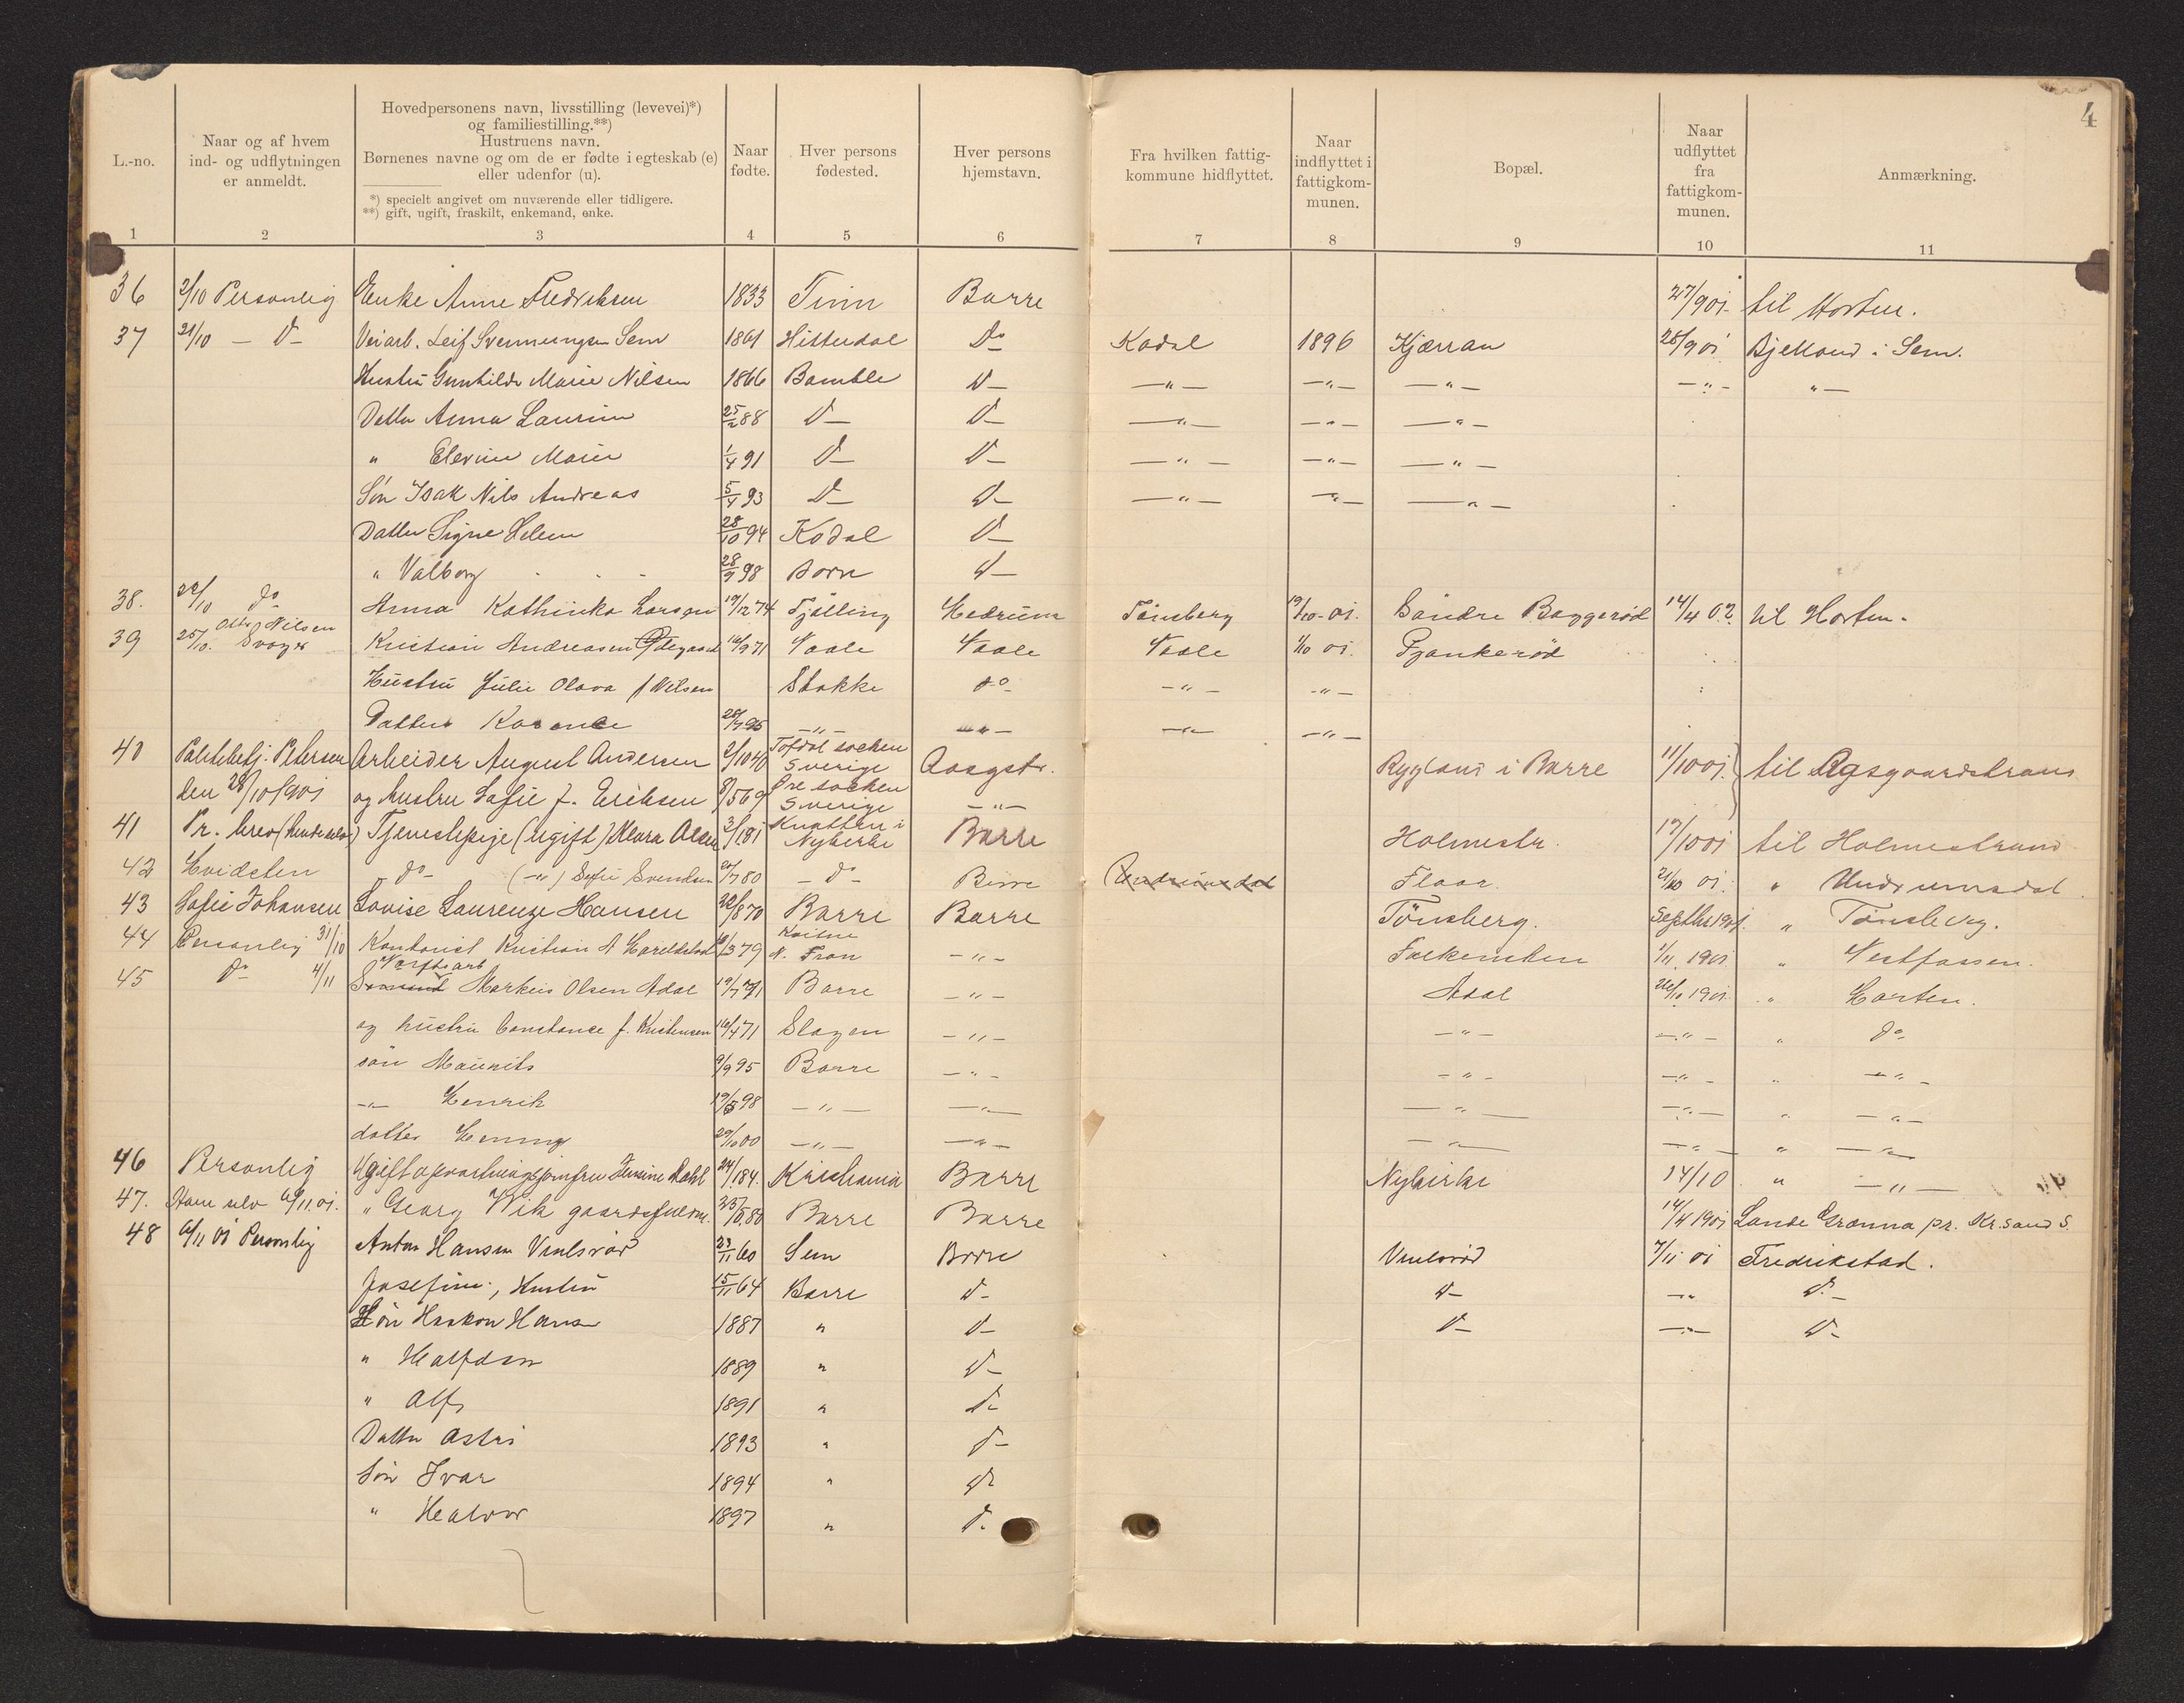 4
L.-no.
Naar og af hvem
ind- og udflytningen
er anmeldt.
Hovedpersonens navn, livsstilling (levevei)*)
og familiestilling.**)
Hustruens navn.
Børnenes navne og om de er fødte i egteskab (e)
eller udenfor (u).
*) specielt angivet om nuværende eller tidligere.
**) gift, ugift, fraskilt, enkemand, enke.
Naar
fødte.
Hver persons
fødested.
Hver persons
hjemstavn.
Fra hvilken fattig-
kommune hidflyttet.
Naar
indflyttet i
fattigkom-
munen.
Bopæl.
Naar
udflyttet
fra
fattigkom-
munen.
Anmærkning.
1 2 3 4 5 6 7 8 9 10 11
36 2/10 Personlig Enke Anne Fredriksen 1833 Tinn Borre 27/901. til Horten.
37 21/10 — Do Veiarb. Leif Svennungsen Sem 1861 Hitterdal Do Kodal 1896 Kjærran 28/901 i Sem.
Hustru Gunhilde Marie Nilsen 1866 Bamble Do —"— —"— —"— —"— "—
Datter Anna Laurine 25/2 88 Do Do —"— —"— —"—
" Elevine Marie 1/4 91 Do Do —"— —"— —"—
Søn Isak Nils Andreas 5/4 93 Do Do —"— —"— —"—
Datter Signe Helene 28/10 94 Kodal Do
" Valborg 28/9 98 Borre Do
38. 22/10 do Anna Kathinka Larsen 19/12 74 Tjølling Hedrum Tønsberg 19/10-01. Søndre Baggerød 14/4 02. til Horten.
39 25/10. Nilsen Svoger Kristian Andreasen Ødegaard 16/9 71 Vaale Vaale Vaale 1/10 01. Pjonkerød
Hustru Julie Olava f. Nilsen Stokke do —"— —"—
Datter 28/7 95 —"— —"— —"— —"—
40 Politibetj. Petersen Arbeider August Andersen 2/10 40 Tofdal socken Sverige Aasgstr. Rygland i Borre 11/1001. til Aasgaardstrand
den 28/10 1901 og hustru Sofie f. Eriksen 8/5 69 Øre socken Sverige —"—
41 Pr. brev (hende selv) Tjenestepige (ugift) Klara Olsen 3/1 81 Knatten i Nykirke Borre Holmestr. 19/1001 til Holmestrand
42 Hvidsten do (—"—) Sofie Svendsen 20/7 80 — do — Borre Undrumsdal Floor. 21/10 01. " Undrumsdal
43 Sofie Johansen Lovise Laurenze Hansen 22/8 70 Borre Borre Tønsberg. Septbr 1901. " Tønsberg.
44 Personlig 31/10 Kontorist Kristian A Haroldstad 18/3 79 N. Fron —"— Falkensten 1/11. 1901 " Vestfossen.
45 do 4/11 Værftsarb Markus Olsen Adal 19/7 71 Borre —"— Adal 26/10. 1901. " Horten.
og hustru Constance f. Kristensen 16/4 71 Slagen —"— —"— —"— " do
søn Mauritz 9/9 95 Borre —"— —"— —"— " —"—
—"— Henrik 19/5 98 —"— —"— —"— —"— " —"—
datter Henny 29/10 00 —"— —"— —"— —"— " —"—
46 Personlig Ugift opvartningsjomfru Jensine Dahl 24/1 84. Kristiania Borre Nykirke 14/10 " —"—
47. Ham selv 6/11. 01. " Georg Wik gaardsfuldm. 23/10. 80 Borre Borre 14/4 1901 Lande Grænna pr. Kr.sand S.
48 6/11 01 Personlig Anton Hansen Vinlsrød 23/11 60 Sem Borre Vinlsrød 7/11 01 Fredrikstad.
Josefine, Hustru 15/11 64 Borre Do Do —"— Do
Søn Haakon Hansen 1887 " Do Do —"— Do
" Halfdan 1889 " Do
" Alf 1891 " Do
Datter Astri 1893 " Do
Søn Ivar 1894 " Do
" Halvor 1897 " Do